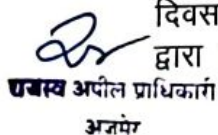 दिवस
द्वारा
राजस्व अपील प्राधिकारी
अजमेर